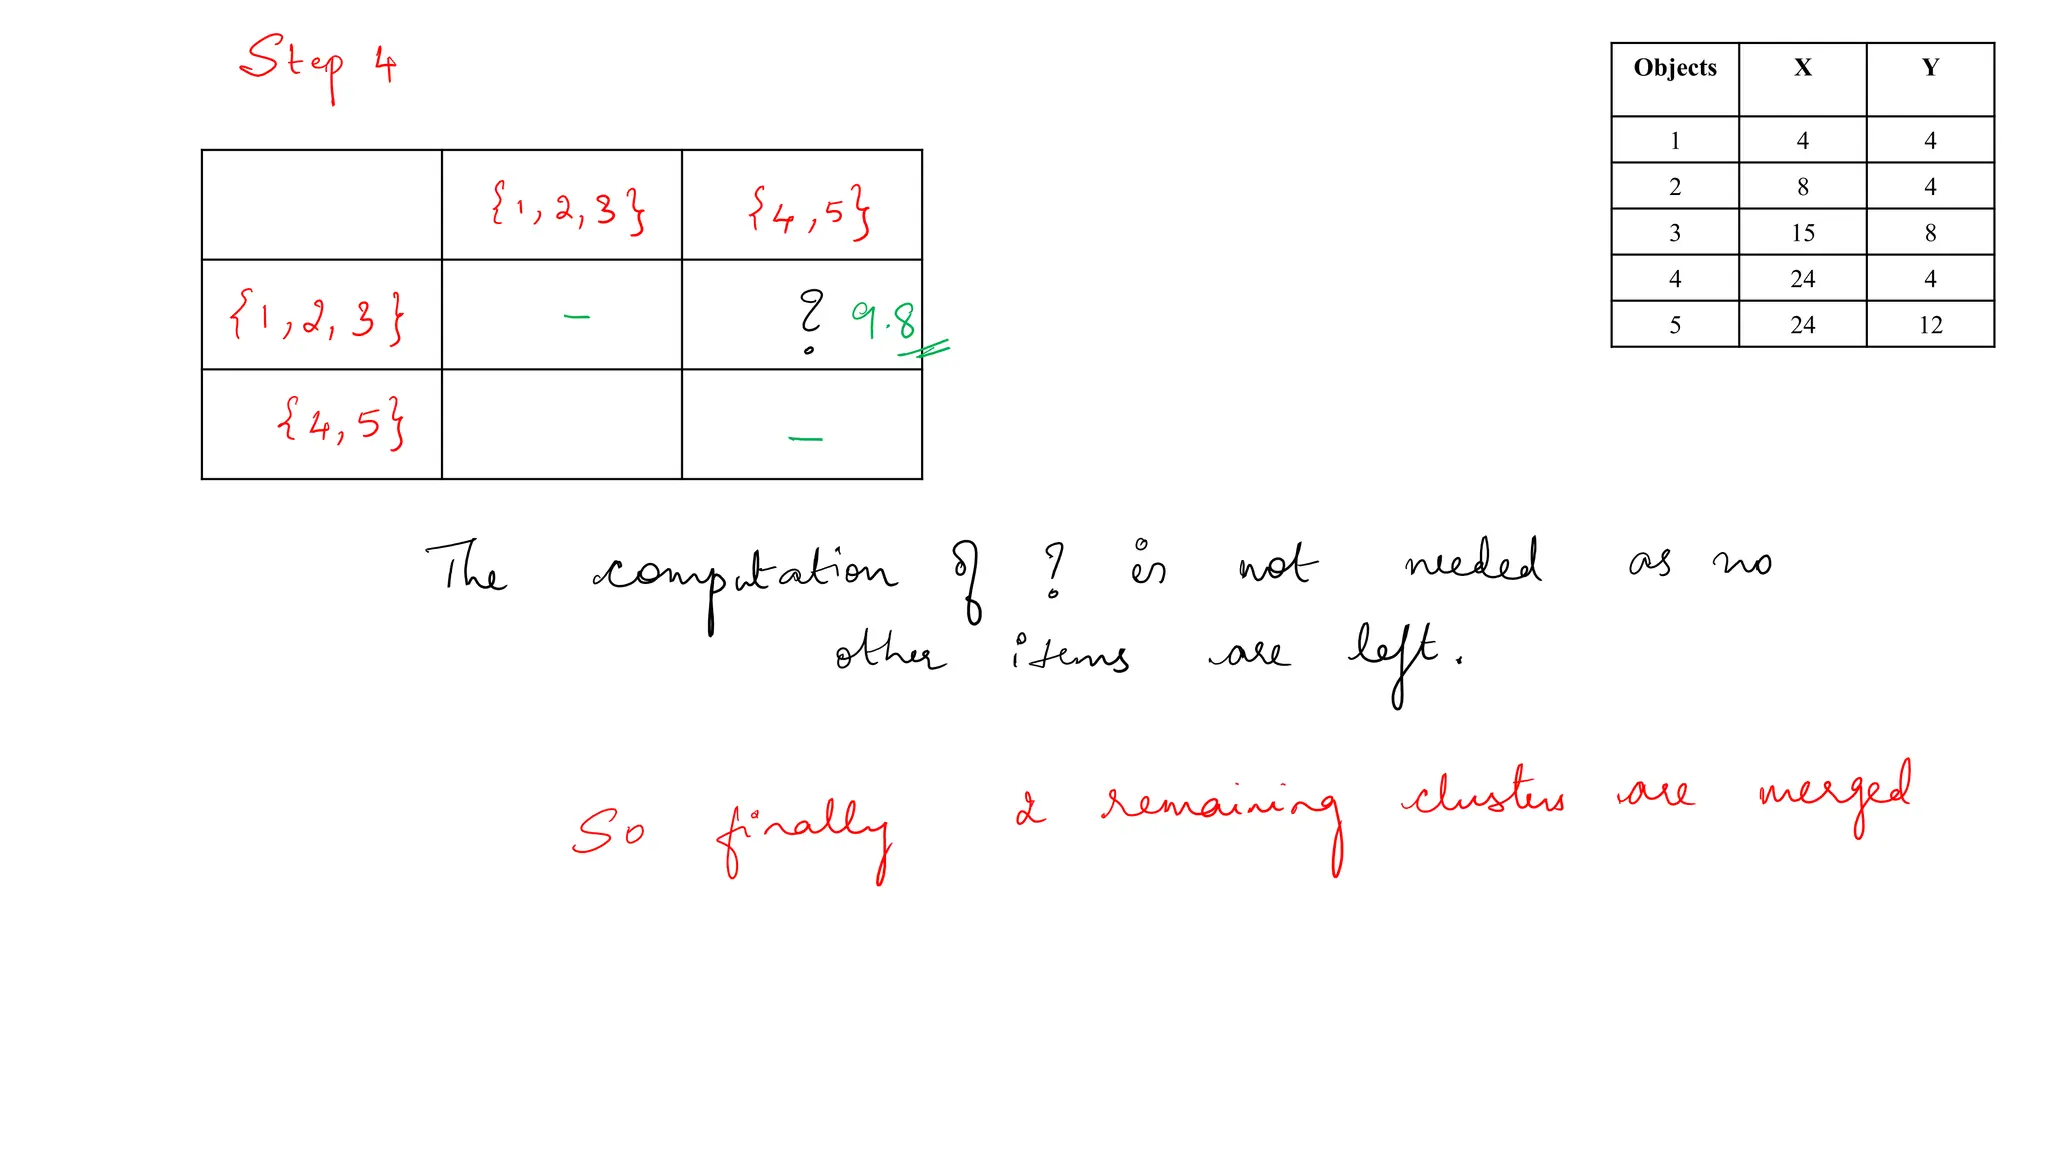 Step 4
Objects X Y
1 4 4
2 8 4
3 15 8
4 24 4
5 24 12
{1,2,3} {4,5}
{1,2,3} - ? 9.8
{4,5} -
The computation of ? is not needed as no
other items are left.
So finally 2 remaining clusters are merged